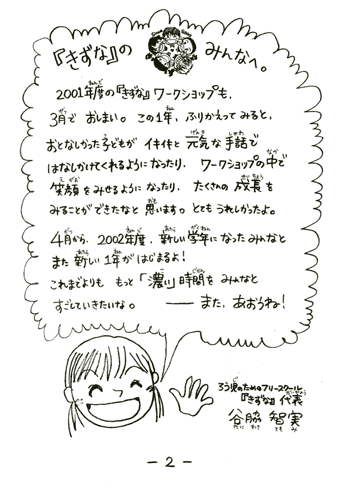 『きずな』の みんなへ。
2001年度の『きずな』ワークショップも、
3月で おしまい。この1年、ふりかえってみると、
おとなしかった子どもが イキイキと 元気な手話で
はなしかけてくれるようになったり、ワークショップの中で
笑顔をみせるようになったり、たくさんの 成長を
みることができたなと 思います。とても うれしかったよ。
4月から、2002年度、新しい学年になったみんなと
また新しい1年がはじまるよ!
これまでよりも もっと「濃い」時間を みんなと
すごしていきたいな。 ―― また、あおうね!
ろう児のためのフリースクール
『きずな』代表
谷脇 智実
たに わき とも み
- 2 -